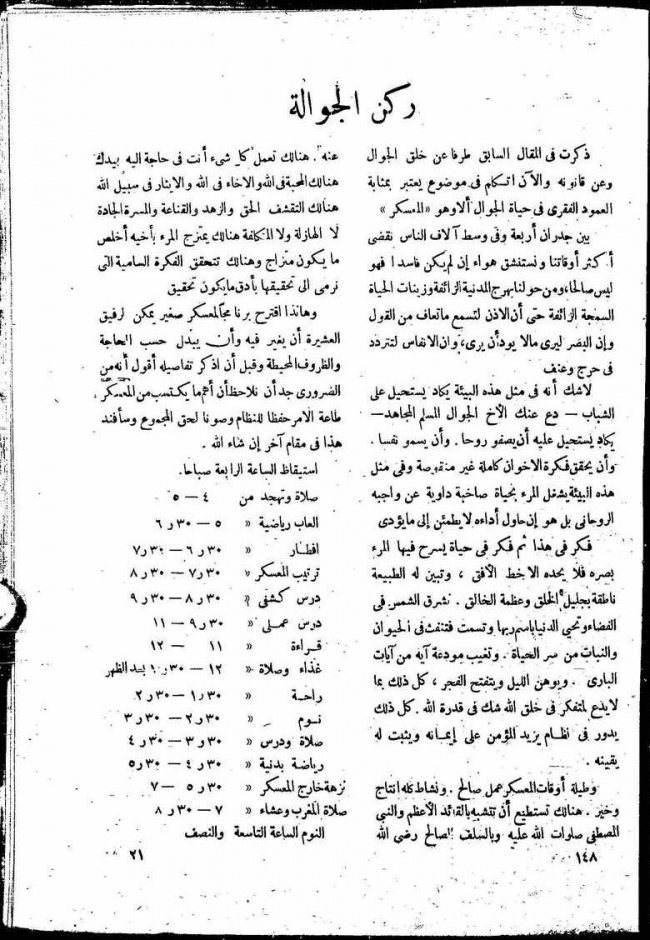 ركن الجوالة
ذكرت فى المقال السابق طرفا عن خلق الجوال
وعن قانونه والآن أتكلم فى موضوع يعتبر بمثابة
العمود الفقرى فى حياة الجوال ألا وهو «المعسكر»
بين جدران أربعة وفى وسط آلاف الناس نقضى
أكثر أوقاتنا ونستنشق هواء إن لم يكن فاسدا فهو
ليس صالحا، ومن حولنا بهرج المدنية الزائفة وزينات الحياة
السمجة الزائفة حتى أن الاذن لتسمع ماتعاف من القول
وإن البصر ليرى مالا يود أن يرى، وان الانفاس لتتردد
فى حرج وعنف
لاشك أنه فى مثل هذه البيئة يكاد يستحيل على
الشباب — دع عنك الأخ الجوال المسلم المجاهد —
يكاد يستحيل عليه أن يصفو روحا. وأن يسمو نفسا.
وأن يحقق فكرة الاخوان كاملة غير منقوصة وفى مثل
هذه البيئة يشغل المرء بحياة صاخبة داوية عن واجبه
الروحانى بل هو إن حاول أداءه لا يطمئن إلى مايؤدى
فكر فى هذا ثم فكر فى حياة يسرح فيها المرء
بصره فلا يحده الا خط الافق، وتبين له الطبيعة
ناطقة بجليل الخلق وعظمة الخالق. تشرق الشمس فى
الفضاء وتحيى الدنيا باسم ربها وتسمت فتنفث فى الحيوان
والنبات من سر الحياة. وتغيب مودعة آيه من آيات
البارى. ويوهن الليل ويتفتح الفجر، كل ذلك بما
لايدع لمتفكر فى خلق الله شك فى قدرة الله. كل ذلك
يدور فى نظام يزيد المؤمن على إيمانه ويثبت له
يقينه.
وطيلة أوقات المعسكر عمل صالح. ونشاط كله إنتاج
وخير. هنالك تستطيع أن تتشبه بالقائد الأعظم والنبى
المصطفى صلوات الله عليه وبالسلف الصالح رضى الله
١٤٨
عنه. هنالك تعمل كل شىء أنت فى حاجة اليه بيدك
هنالك المحبة فى الله والاخاء فى الله والايثار فى سبيل الله
هنالك التقشف الحق والزهد والقناعة والمسرة الجادة
لا الهازلة ولا المتكلفة هنالك يمتزج المرء بأخيه أخلص
ما يكون متزاج وهنالك تتحقق الفكرة السامية التى
نرمى الى تحقيقها بأدق مايكون تحقيق
وهانذا اقترح برنامجا لمعسكر صغير يمكن لرفيق
العشيرة أن يغير فيه وأن يبدل حسب الحاجة
والظروف المحيطة وقبل أن اذكر تفاصيله أقول أنه من
الضرورى جدا أن نلاحظ أن أهم ما يكتسب من المعسكر
طاعة الامر حفظا للنظام وصونا لحق المجموع وسأفند
هذا فى مقام آخر إن شاء الله.
استيقاظ الساعة الرابعة صباحا.
صلاة وتهجد من ٤ — ٥
العاب رياضية « ٥ — ٣٠ر٦
افطار « ٣٠ر٦ — ٣٠ر٧
ترتيب المعسكر « ٣٠ر٧ — ٣٠ر٨
درس كشفى « ٣٠ر٨ — ٣٠ر٩
درس عملى « ٣٠ر٩ — ١١
قراءة « ١١ — ١٢
غذاء وصلاة « ١٢ — ٣٠ر١ بعد الظهر
راحة « ٣٠ر١ — ٣٠ر٢
نوم « ٣٠ر٢ — ٣٠ر٣
صلاة ودرس « ٣٠ر٣ — ٣٠ر٤
رياضة بدنية « ٣٠ر٤ — ٣٠ر٥
نزهة خارج المعسكر « ٣٠ر٥ — ٧
صلاة المغرب وعشاء « ٧ — ٣٠ر٨
النوم الساعة التاسعة والنصف
٢١